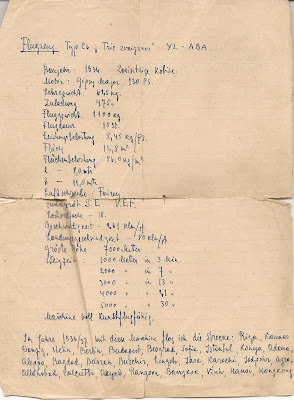 Flugzeug Typ C6 „Trīs zvaigznes" YL-ABA.
Baujahr: 1934. Zweisitzige
Motor: Gipsy Major 130 PS.
Leergewicht
Zuladung 475
Fluggewicht 1100 kg
Flugdauer 10 St.
Leistungsbelastung 8,45 kg/PS.
Fläche 14,8 m²
Flächenbelastung
L - 8,0 mtr
B - 11,0 mtr
Luftschraube - Fairey
S.E. V.E.F.
- 18.
Geschwindigkeit - Klm/st
Landungsgeschwindigkeit - 80 Klm/st
größte Höhe 7000 meter
Steigzeit: 1000 Meter in 3 Min
2000 " in 7 "
3000 " in 13 "
4000 " in 21 "
5000 " in 30 "
Maschine voll Kunstflugfähig
Im Jahre 1936/37 mit dieser Maschine flog ich die Strecke: Riga, Kaunas
Danzig, Berlin, Budapest, Beograd, Sofia, Istanbul, Konya, Adana,
Aleppo, Bagdad, Basrah, Buschir, Lingeh, Jask, Karachi, Jodpohr, Agra,
Allahabad, Calcutta, Akyab, Rangoon, Bangkok, Vinh, Hanoi, Hongkong